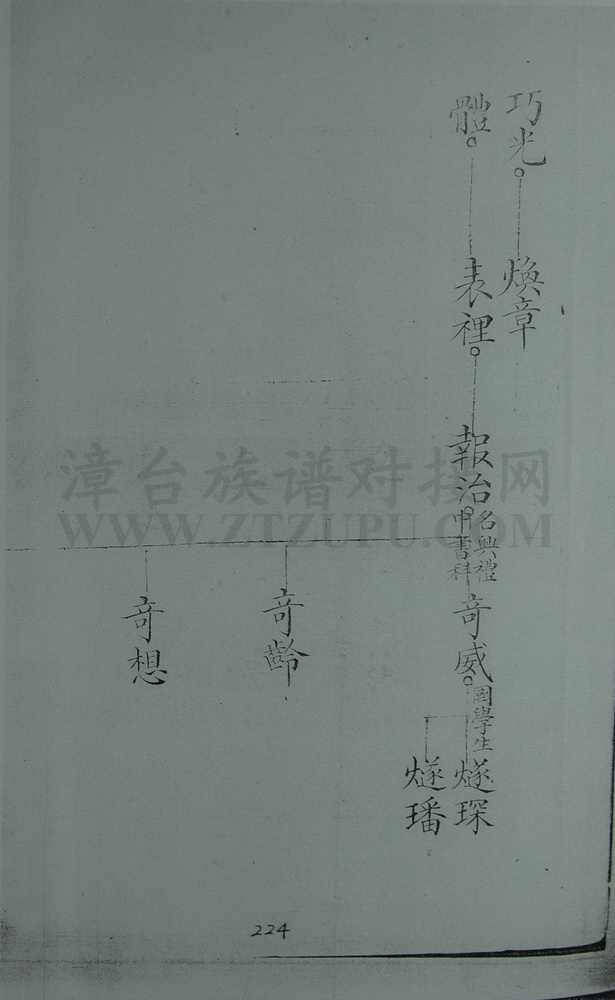 巧光
煥章
體
表裡
報治
名興禮
中書科
奇威
國學生
燧琛
燧璠
奇齡
奇想
漳台族谱对接网
WWW.ZTZUPU.COM
224